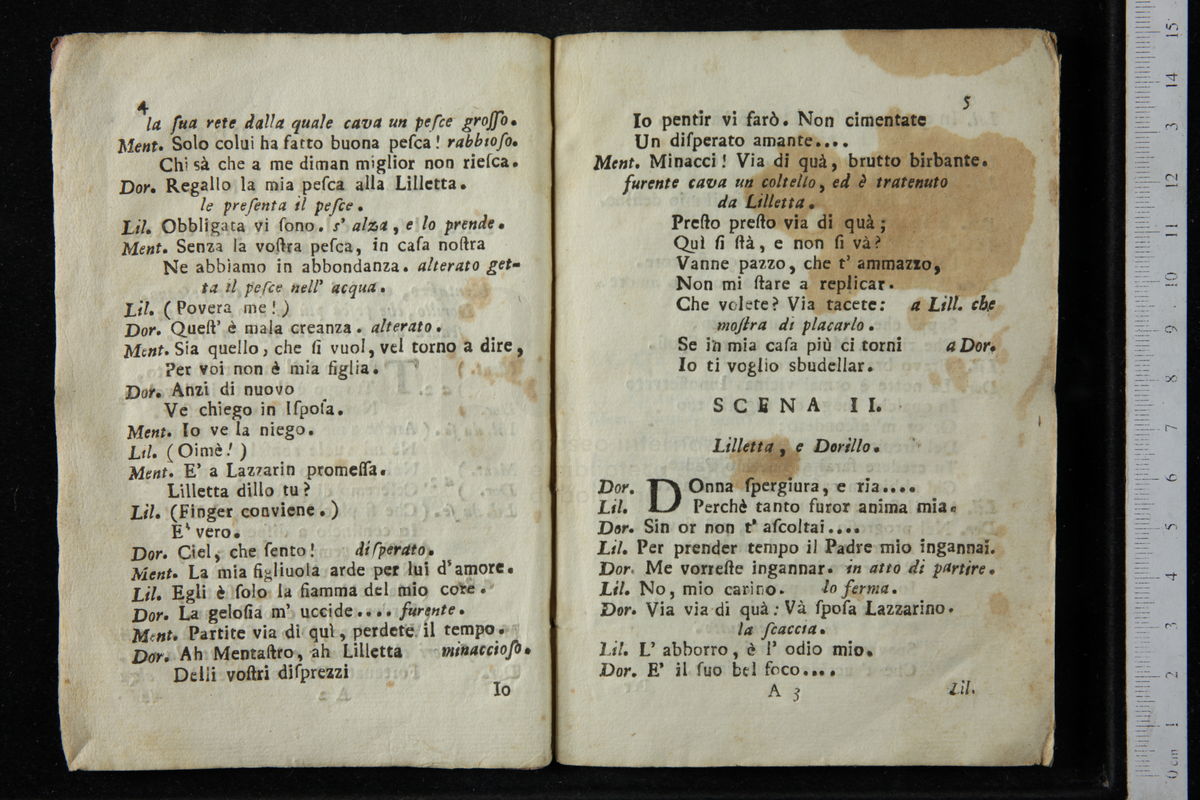 4
la ſua rete dalla quale cava un peſce groſſo.
Ment. Solo colui ha fatto buona peſca! rabbioſo.
Chi sà che a me diman miglior non rieſca.
Dor. Regallo la mia peſca alla Lilletta.
le preſenta il peſce.
Lil. Obbligata vi ſono. s' alza, e lo prende.
Ment. Senza la voſtra peſca, in caſa noſtra
Ne abbiamo in abbondanza. alterato get-
ta il peſce nell' acqua.
Lil. (Povera me!)
Dor. Queſt' è mala creanza. alterato.
Ment. Sia quello, che ſi vuol, vel torno a dire,
Per voi non è mia figlia.
Dor. Anzi di nuovo
Ve chiego in Iſpoſa.
Ment. Io ve la niego.
Lil. (Oimè!)
Ment. E' a Lazzarin promeſſa.
Lilletta dillo tu?
Lil. (Finger conviene.)
E' vero.
Dor. Ciel, che ſento! diſperato.
Ment. La mia figliuola arde per lui d'amore.
Lil. Egli è ſolo la fiamma del mio core.
Dor. La geloſia m' uccide.... furente.
Ment. Partite via di quì, perdete il tempo.
Dor. Ah Mentaſtro, ah Lilletta minaccioſo.
Delli voſtri diſprezzi
Io
5
Io pentir vi farò. Non cimentate
Un diſperato amante....
Ment. Minacci! Via di quà, brutto birbante.
furente cava un coltello, ed è tratenuto
da Lilletta.
Preſto preſto via di quà;
Quì ſi ſtà, e non ſi và?
Vanne pazzo, che t' ammazzo,
Non mi ſtare a replicar.
Che volete? Via tacete: a Lill. che
moſtra di placarlo.
Se in mia caſa più ci torni a Dor.
Io ti voglio sbudellar.
SCENA II.
Lilletta, e Dorillo.
Dor. DOnna ſpergiura, e ria....
Lil. Perchè tanto furor anima mia.
Dor. Sin or non t' aſcoltai....
Lil. Per prender tempo il Padre mio ingannai.
Dor. Me vorreſte ingannar. in atto di partire.
Lil. No, mio carino. lo ferma.
Dor. Via via di quà: Và ſpoſa Lazzarino.
la ſcaccia.
Lil. L' abborro, è l' odio mio.
Dor. E' il ſuo bel foco....
A 3 Lil.